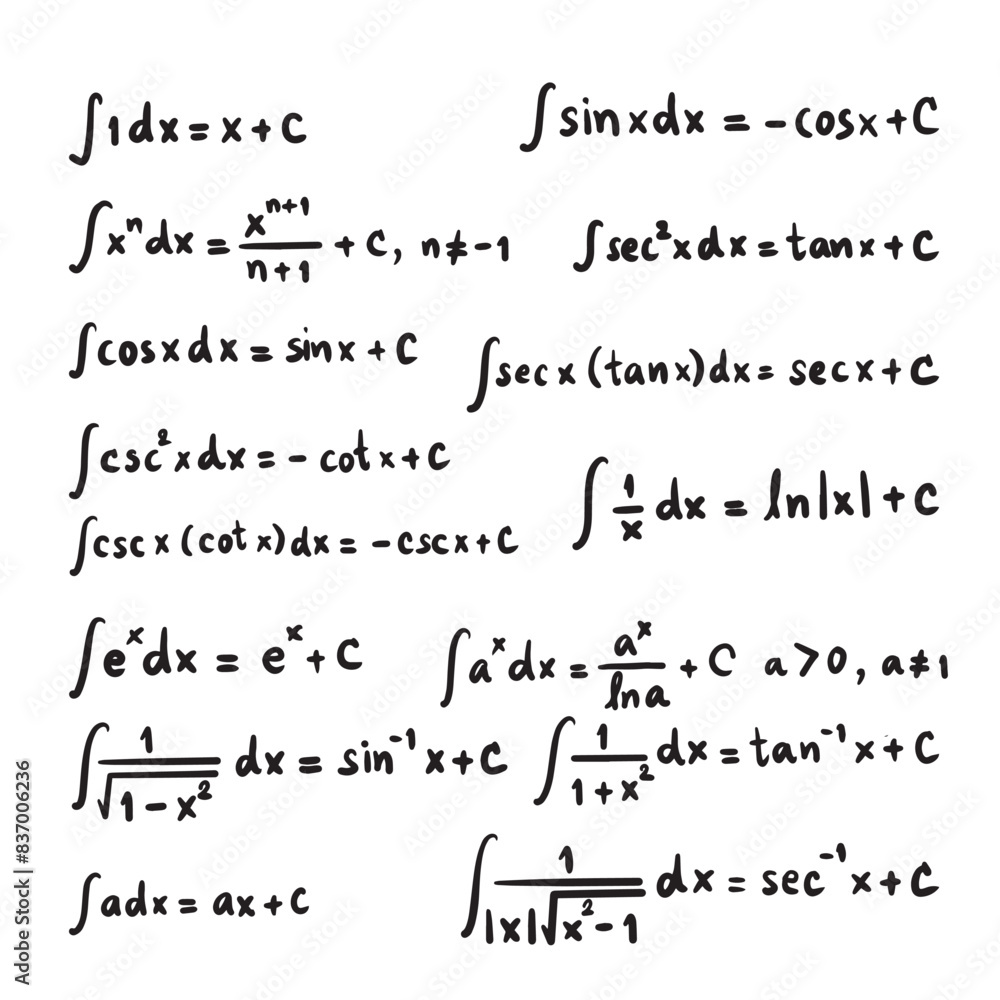 ∫1dx = x + C
∫sinxdx = -cosx + C
∫xⁿdx = xⁿ⁺¹/(n+1) + C, n≠-1
∫sec²xdx = tanx + C
∫cosxdx = sinx + C
∫secx(tanx)dx = secx + C
∫csc²xdx = -cotx + C
∫1/x dx = ln|x| + C
∫cscx(cotx)dx = -cscx + C
∫eˣdx = eˣ + C
∫aˣdx = aˣ/lna + C a>0, a≠1
∫1/√(1-x²) dx = sin⁻¹x + C
∫1/(1+x²) dx = tan⁻¹x + C
∫adx = ax + C
∫1/(|x|√(x²-1)) dx = sec⁻¹x + C
Adobe Stock | #837006236